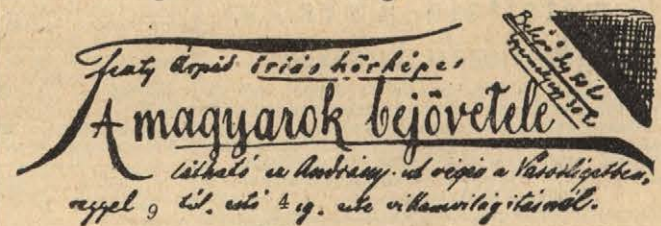 Feszty Árpád óriás körképe:
A magyarok bejövetele
látható az Andrássy-ut végén a Városligetben,
reggel 9 től, esti 4 ig, este villamvilágitásnál.
Belépő díj